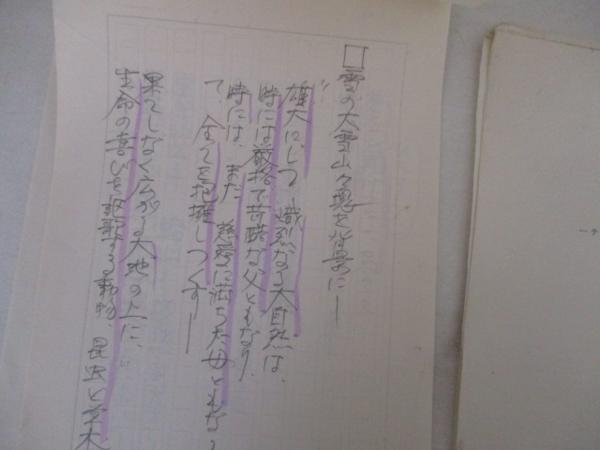 □雪の大雪山々塊を背景に―
雄大にして熾烈なる大自然は、
時には厳格で苛酷な父ともなり、
時には、また慈愛に満ちた母ともな
て、全てを抱擁しつくす――
果てしなく広がる大地の上に、
生命の喜びを謳歌する動物、昆虫と草木